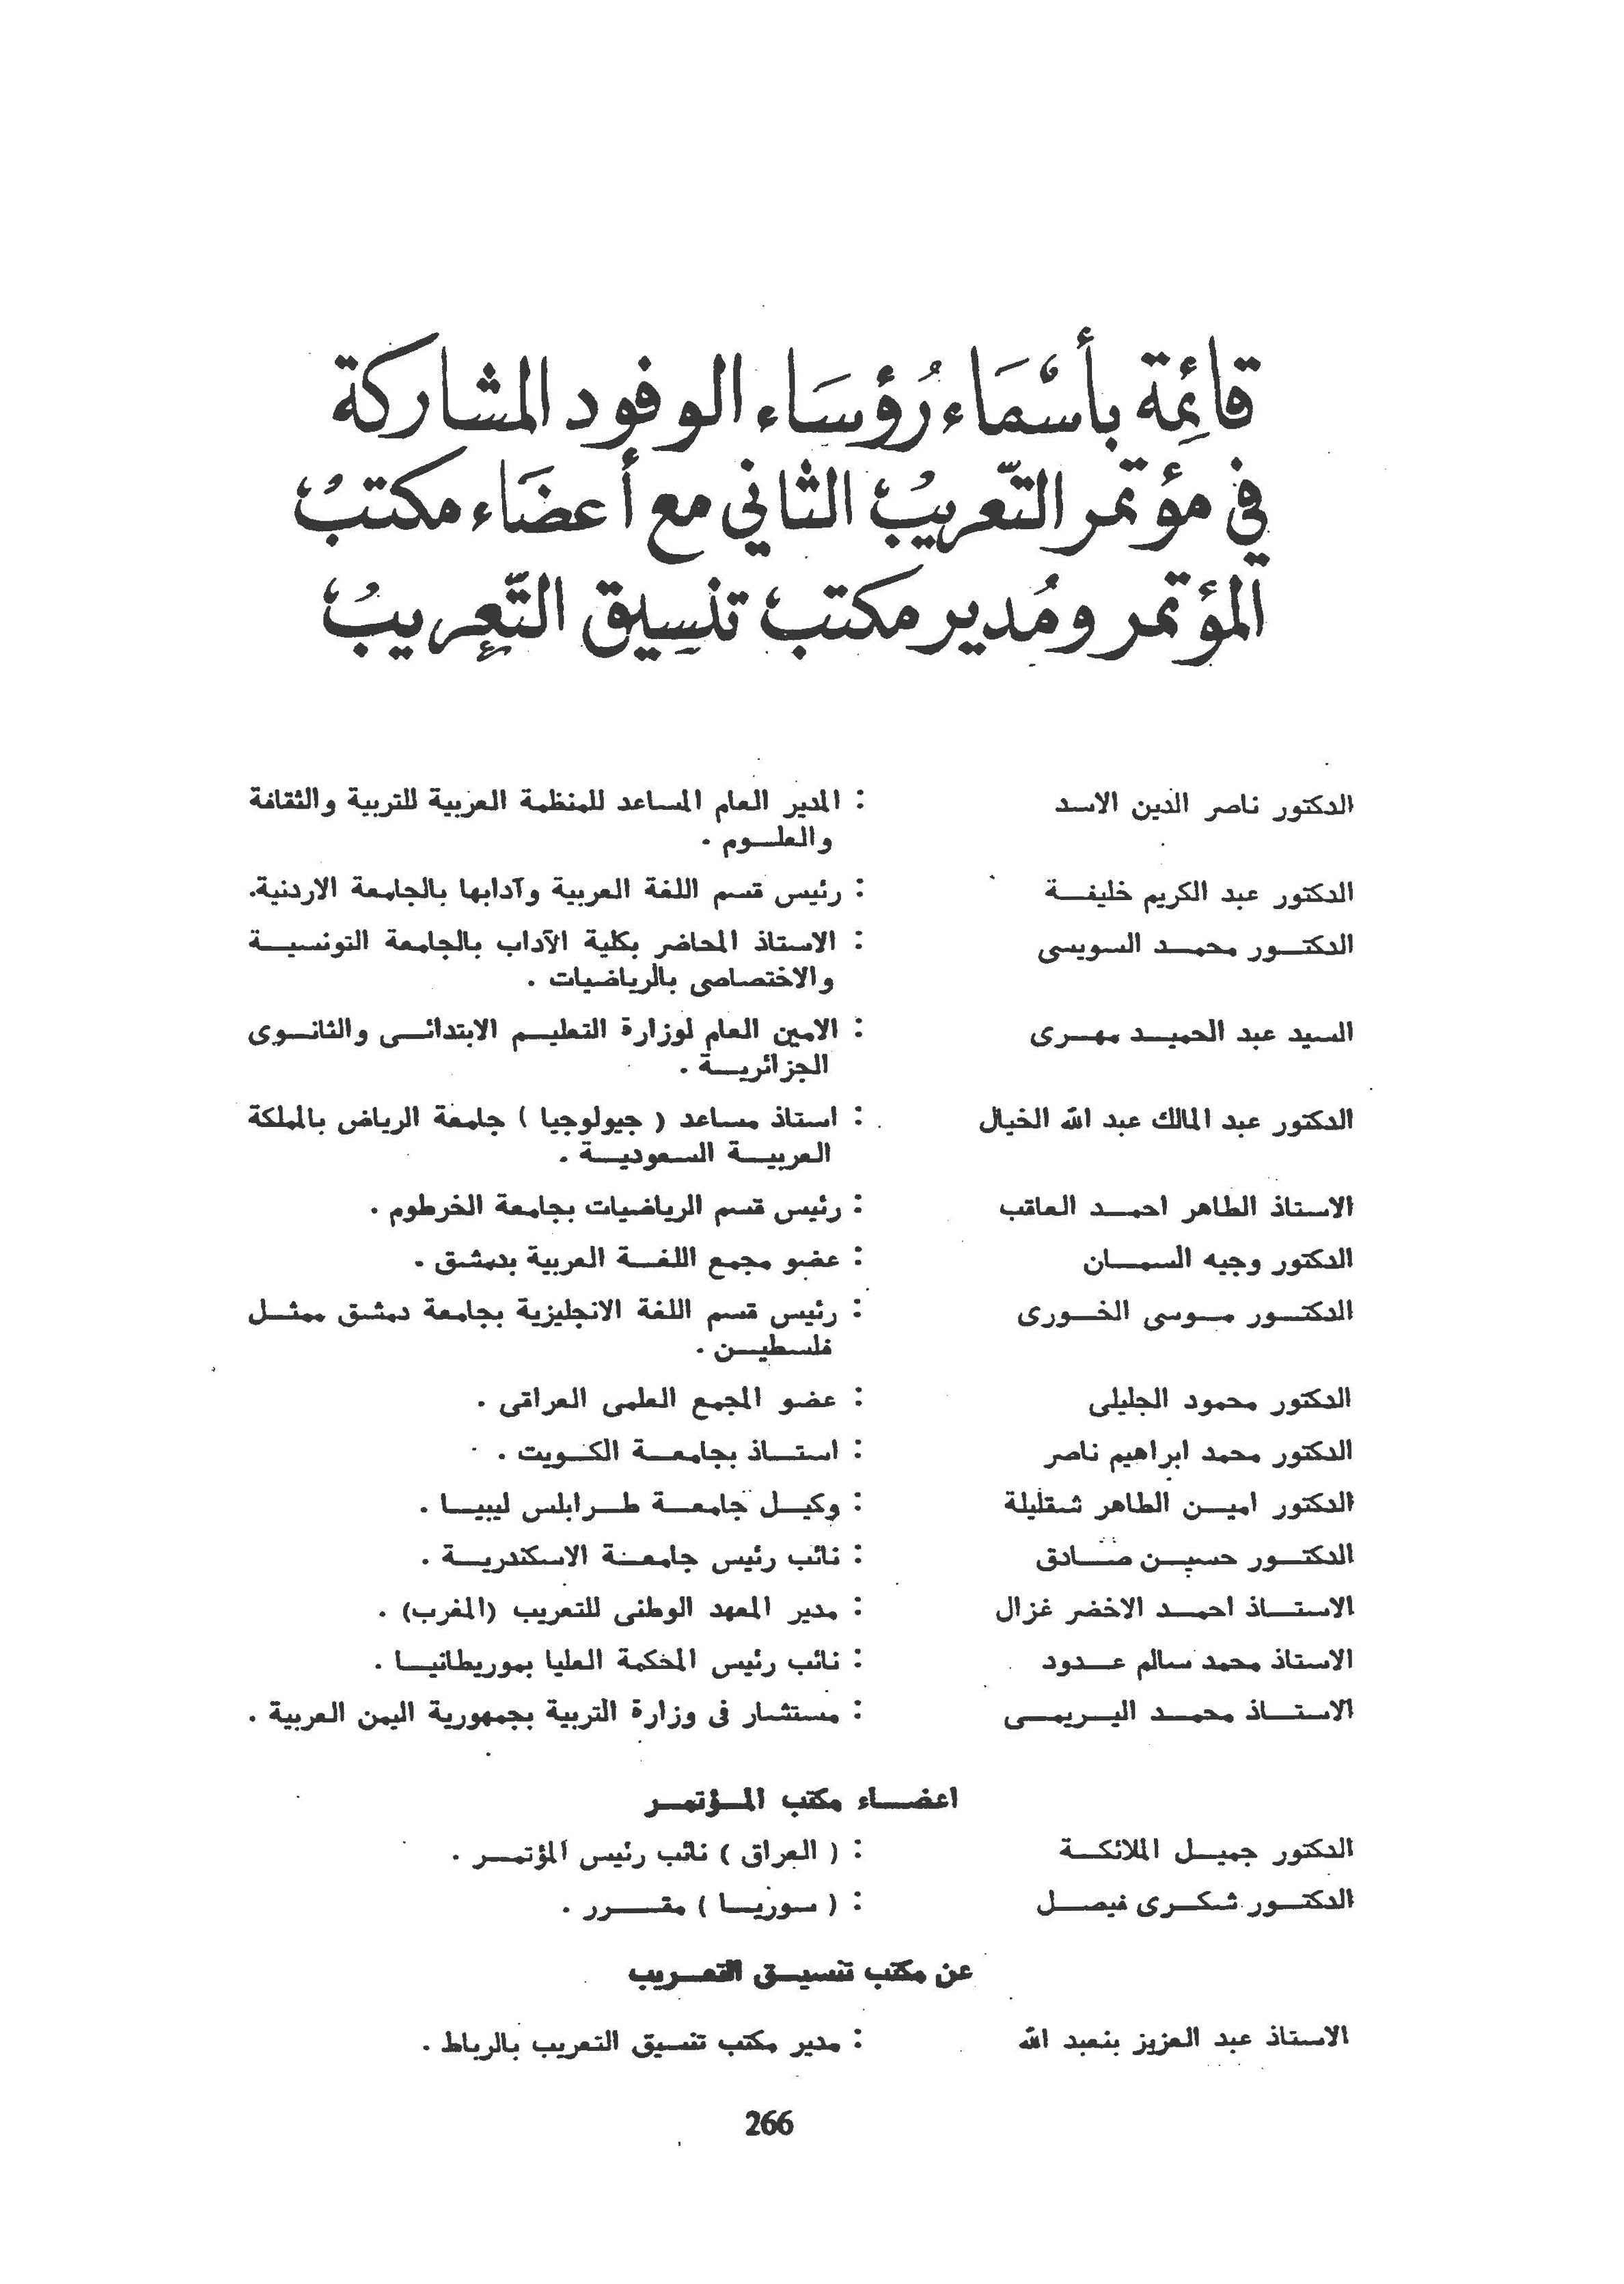 قائمة بأسماء رؤساء الوفود المشاركة
في مؤتمر التعريب الثاني مع أعضاء مكتب
المؤتمر ومدير مكتب تنسيق التعريب
الدكتور ناصر الدين الاسد : المدير العام المساعد للمنظمة العربية للتربية والثقافة
والعلوم .
الدكتور عبد الكريم خليفة : رئيس قسم اللغة العربية وآدابها بالجامعة الاردنية.
الدكتور محمد السويسى : الاستاذ المحاضر بكلية الآداب بالجامعة التونسية
والاختصاصى بالرياضيات .
السيد عبد الحميد مهرى : الامين العام لوزارة التعليم الابتدائى والثانوى
الجزائرية .
الدكتور عبد المالك عبد الله الخيال : استاذ مساعد ( جيولوجيا ) جامعة الرياض بالمملكة
العربية السعودية .
الاستاذ الطاهر احمد العاقب : رئيس قسم الرياضيات بجامعة الخرطوم .
الدكتور وجيه السمان : عضو مجمع اللغة العربية بدمشق .
الدكتور موسى الخورى : رئيس قسم اللغة الانجليزية بجامعة دمشق ممثل
فلسطين .
الدكتور محمود الجليلى : عضو المجمع العلمى العراقى .
الدكتور محمد ابراهيم ناصر : استاذ بجامعة الكويت .
الدكتور امين الطاهر شقليلة : وكيل جامعة طرابلس ليبيا .
الدكتور حسين صادق : نائب رئيس جامعة الاسكندرية .
الاستاذ احمد الاخضر غزال : مدير المعهد الوطنى للتعريب (المغرب) .
الاستاذ محمد سالم عدود : نائب رئيس المحكمة العليا بموريطانيا .
الاستاذ محمد اليريمى : مستشار فى وزارة التربية بجمهورية اليمن العربية .
اعضاء مكتب المؤتمر
الدكتور جميل الملائكة : ( العراق ) نائب رئيس المؤتمر .
الدكتور شكرى فيصل : ( سوريا ) مقرر .
عن مكتب تنسيق التعريب
الاستاذ عبد العزيز بنعبد الله : مدير مكتب تنسيق التعريب بالرباط .
266